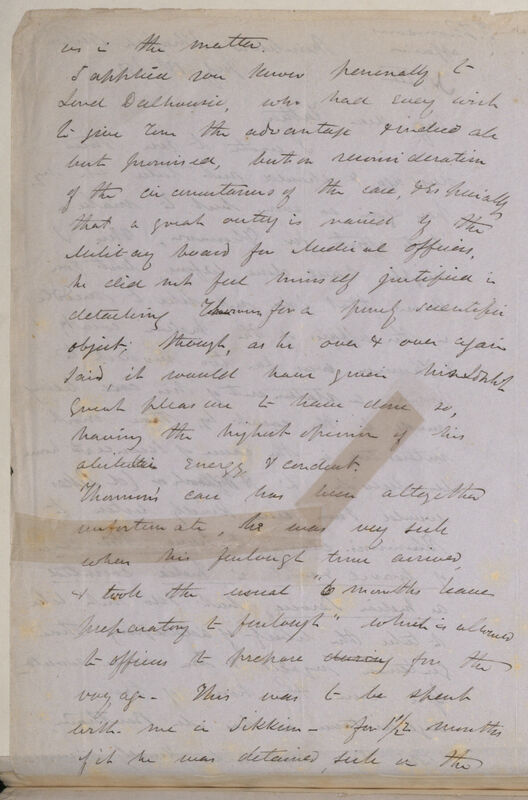 us in the matter.
I applied you know personally to
Lord Dalhousie, who had every wish
to give Tom the advantage & indeed all
but promised, but on reconsideration
of the circumstances of the case, & especially
that a great outcry is raised by the
Military board for Medical officers,
he did not feel himself justified in
detaching Thomson for a purely scientific
object; though, as he over & over again
said, it would have given his Lordsp
great pleasure to have done so,
having the highest opinion of his
abilities energy & conduct.
Thomson's case has been altogether
unfortunate, he was very sick
when his furlough time arrived,
& took the usual "6 months leave
preparatory to furlough" which is allowed
to officers to prepare during for the
voyage - This was to be spent
with me in Sikkim - for 1 1/2 months
of it he was detained, sick in the